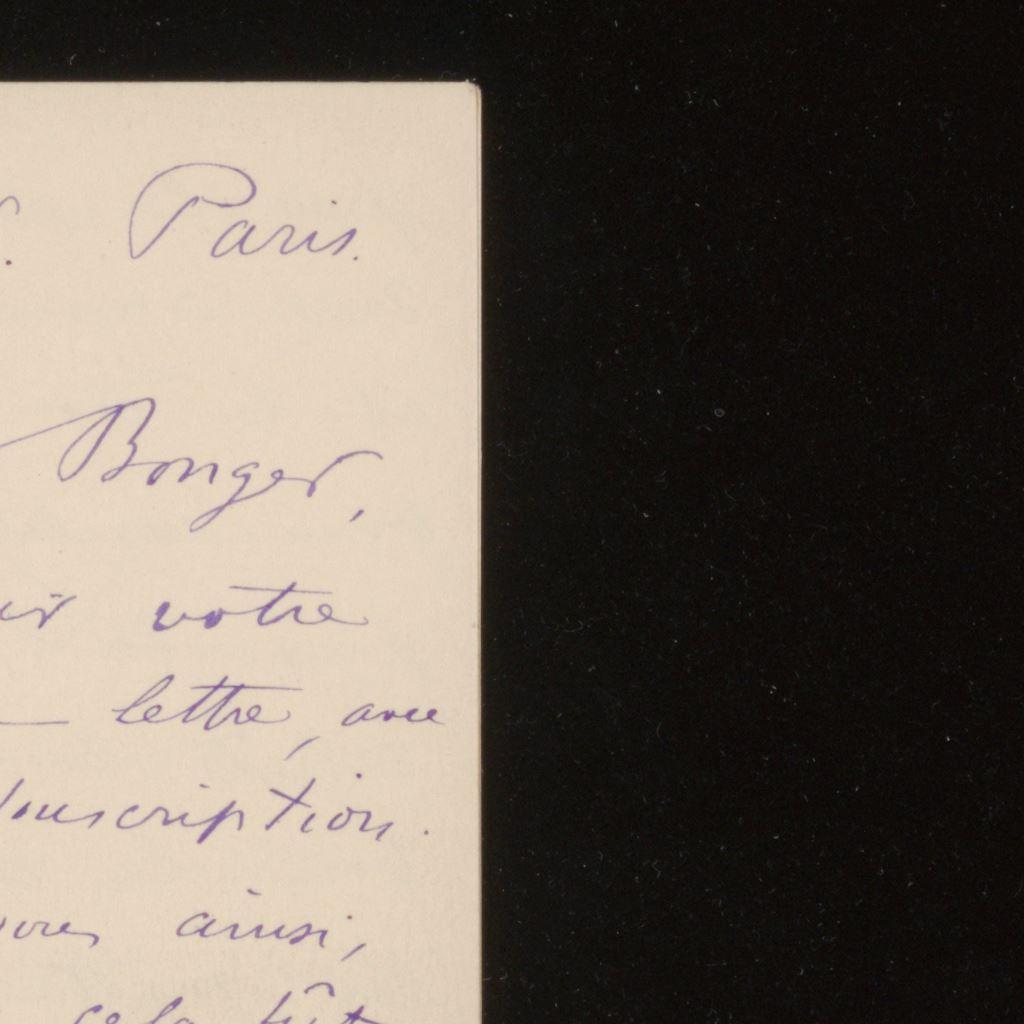 Paris.
Bonger,
votre
lettre, avec
souscription.
ainsi,
cela fût